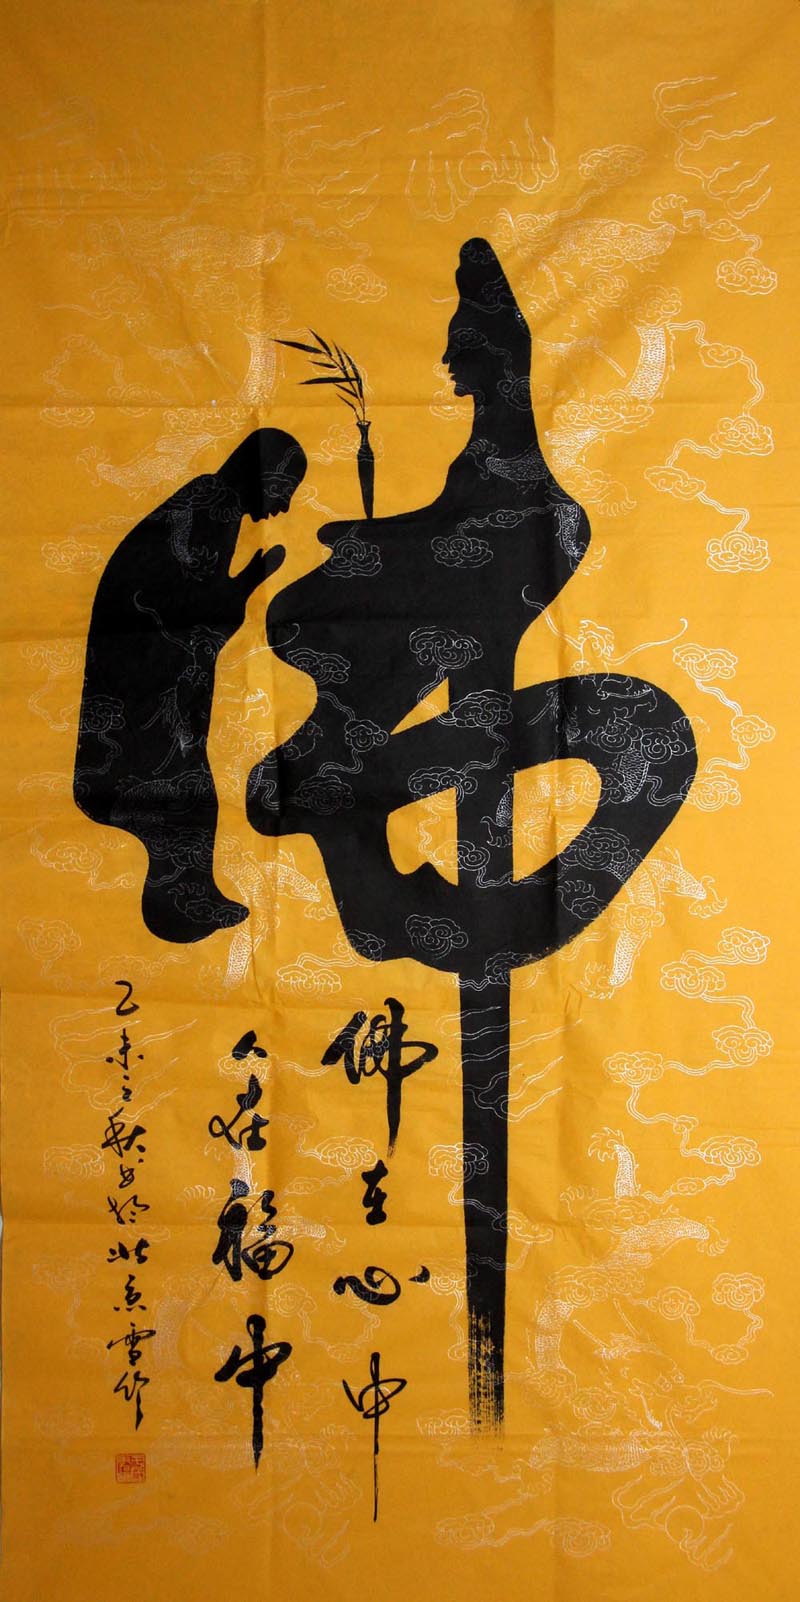 佛
佛在心中
人在福中
乙未之秋书於北京雪竹